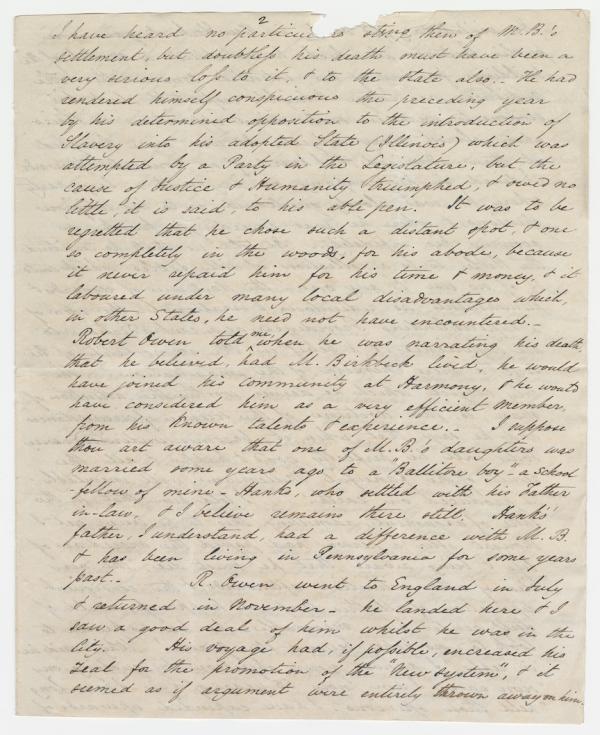 2
I have heard no particulars string then of M. B.'s
settlement, but doubtless his death must have been a
very serious loss to it, & to the state also._ He had
rendered himself conspicuous the preceding year
by his determined opposition to the introduction of
Slavery into his adopted State (Illinois) which was
attempted by a Party in the Legislature, but the
cause of Justice & Humanity triumphed, & owed no
little, it is said, to his able pen. It was to be
regretted that he chose such a distant spot, & one
so completely in the woods, for his abode, because
it never repaid him for his time & money, & it
laboured under many local disadvantages which,
in other States, he need not have encountered._
Robert Owen told me, when he was narrating his death,
that he believed, had M. Birkbeck lived, he would
have joined his community at Harmony, & he would
have considered him as a very efficient member,
from his known talents & experience._ I suppose
thou art aware that one of M. B.'s daughters was
married some years ago to a "Ballitore boy" - a school
-fellow of mine - Hanks, who settled with his Father
in-law, & I believe remains there still. Hanks'
father, I understand, had a difference with M. B.
& has been living in Pennsylvania for some years
past._ R. Owen went to England in July
& returned in November - he landed here & I
saw a good deal of him whilst he was in the
City. His voyage had, if possible, encreased his
zeal for the promotion of the "New System", & it
seemed as if argument were entirely thrown away on him.